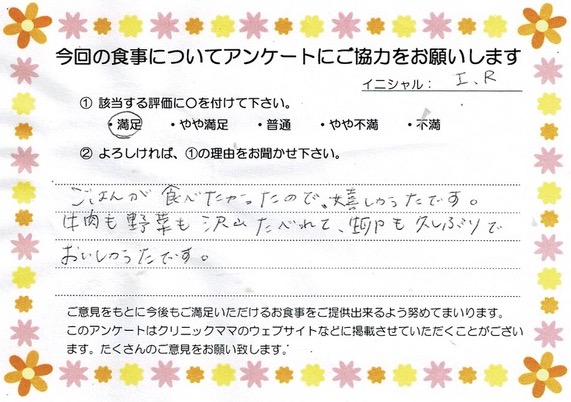 今回の食事についてアンケートにご協力をお願いします
イニシャル： I、R
① 該当する評価に○を付けて下さい。
・満足 ・やや満足 ・普通 ・やや不満 ・不満
② よろしければ、①の理由をお聞かせ下さい。
ごはんが食べたかったので、嬉しかったです。
牛肉も野菜も沢山たべれて、も久しぶりで
おいしかったです。
ご意見をもとに今後もご満足いただけるお食事をご提供出来るよう努めてまいります。
このアンケートはクリニックママのウェブサイトなどに掲載させていただくことがござい
ます。たくさんのご意見をお願い致します。